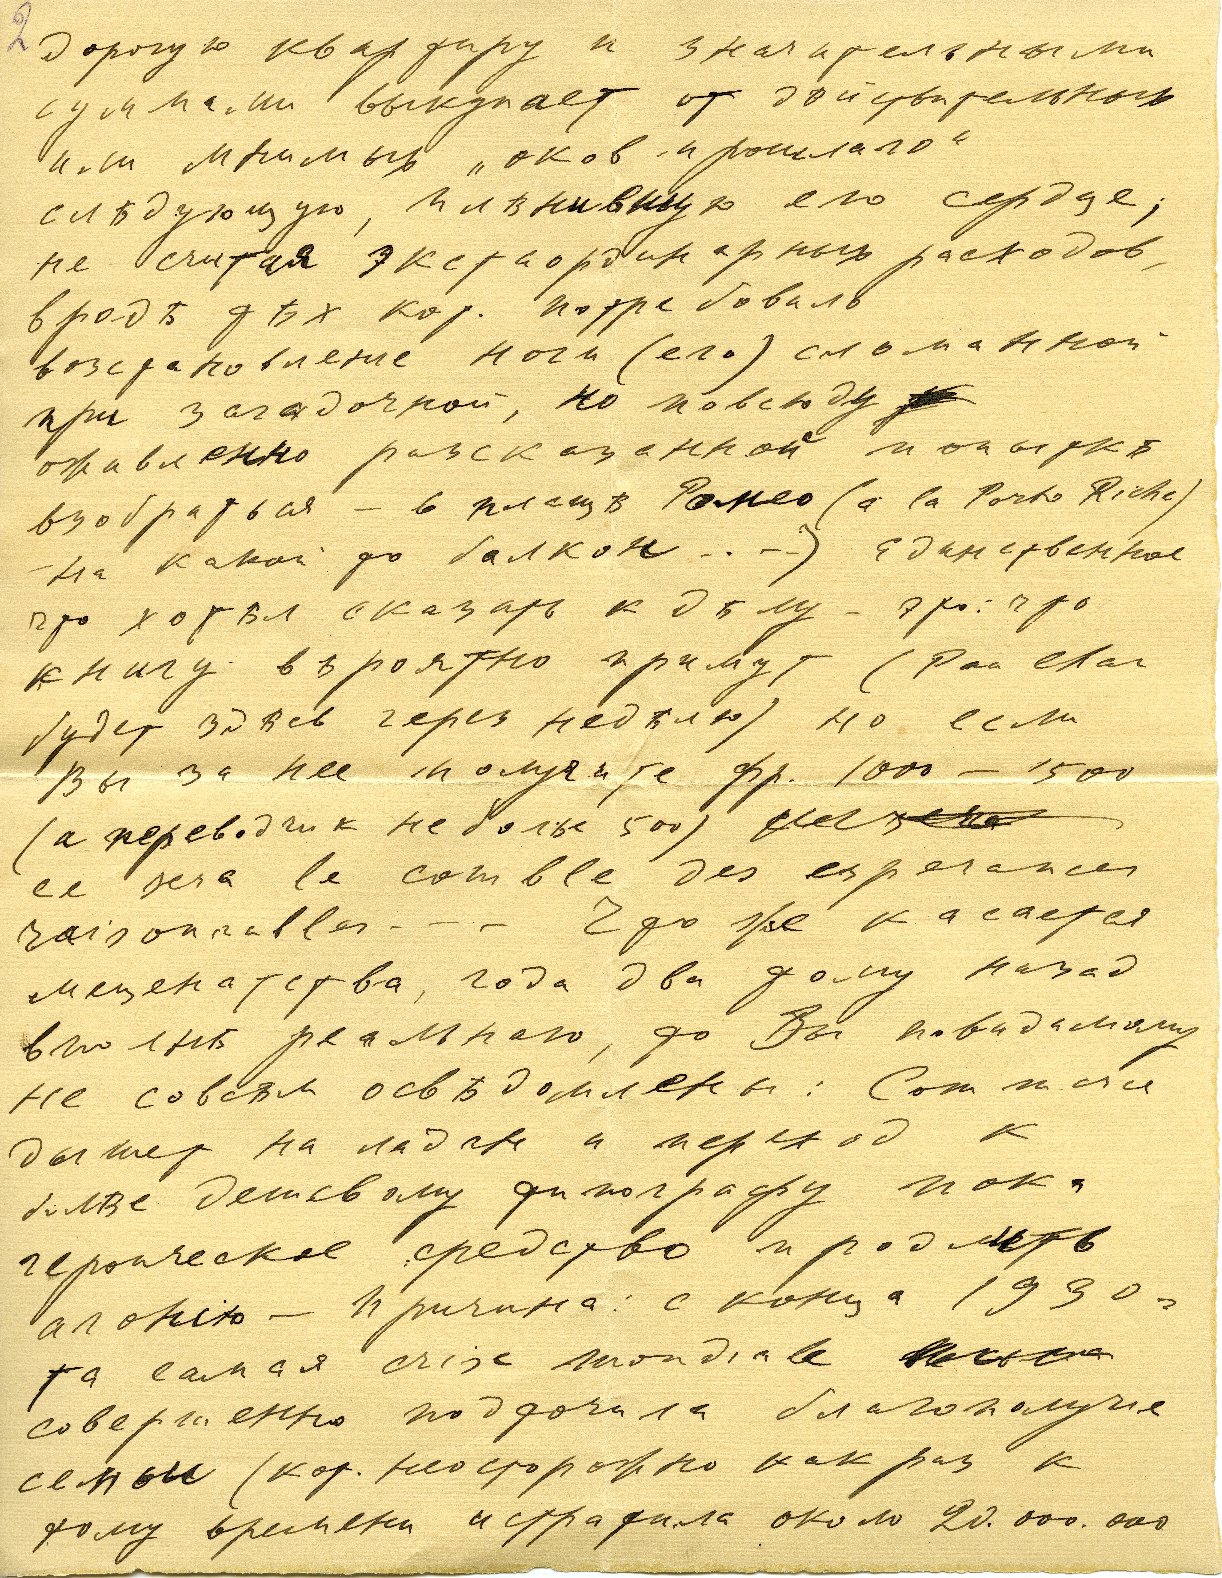 2
дорогую квартиру и значительными
суммами выкупает от дѣйствительных
или мнимых „оков прошлаго“
слѣдующую, плѣнившую его сердце;
не считая экстаординарных расходов,
вродѣ тѣх кот. потребовало
возстановление ноги (его) сломанной
при загадочной, но повсюду
оживленно разсказанной попыткѣ
взобраться – в плащѣ Ромео (a la Porto Riche)
– на какой то балкон ..--) единственное
что хотѣл сказать к дѣлу – это: что
книгу вѣроятно примут (
будет здѣсь через недѣлю) но если
Вы за нее получите фр. 1000 – 1500
(а переводчик не болѣе 500)
ce sera le comble des esperances
raisonnables - - - Что же касается
меценатства, года два тому назад
вполнѣ реальнаго, то Вы повидимому
не совсѣм освѣдомлены: Commerce
дышет на ладан и переход к
болѣе дешевому типографу пока
героическое средство продлить
агонiю – Причина: с конца 1930 –
та самая crise mondiale
совершенно подточила благополучие
семьи (кот. неосторожно как раз к
тому времени истратила около 20.000.000